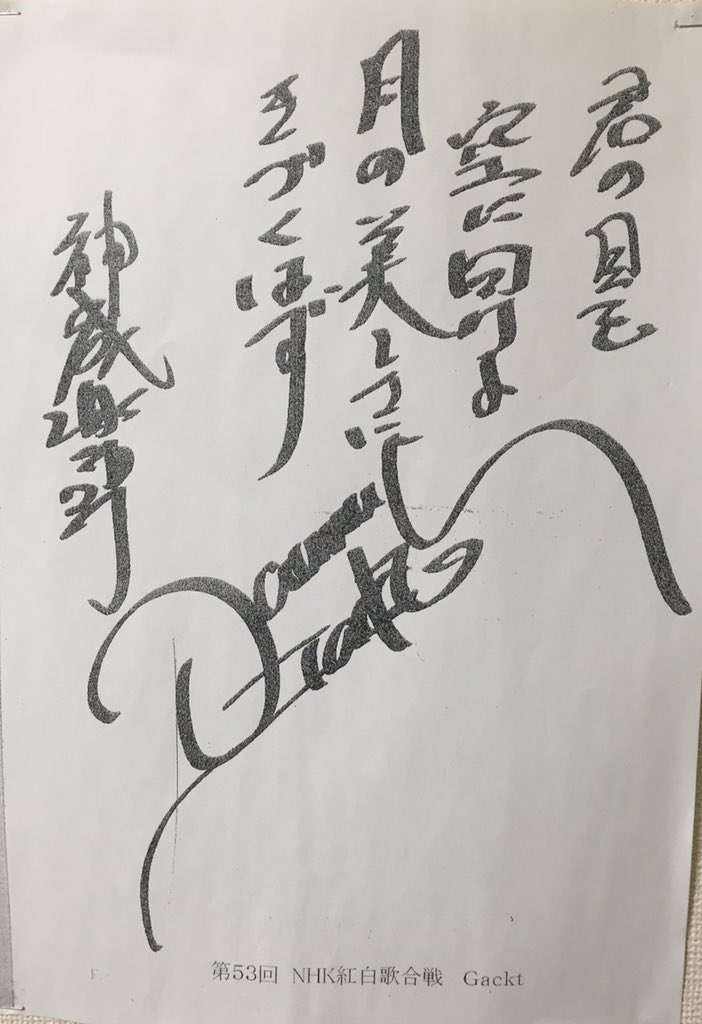 君の目を
空に向けよ
月の美しさに
きづくはず
神威楽斗
第53回 NHK紅白歌合戦 Gackt